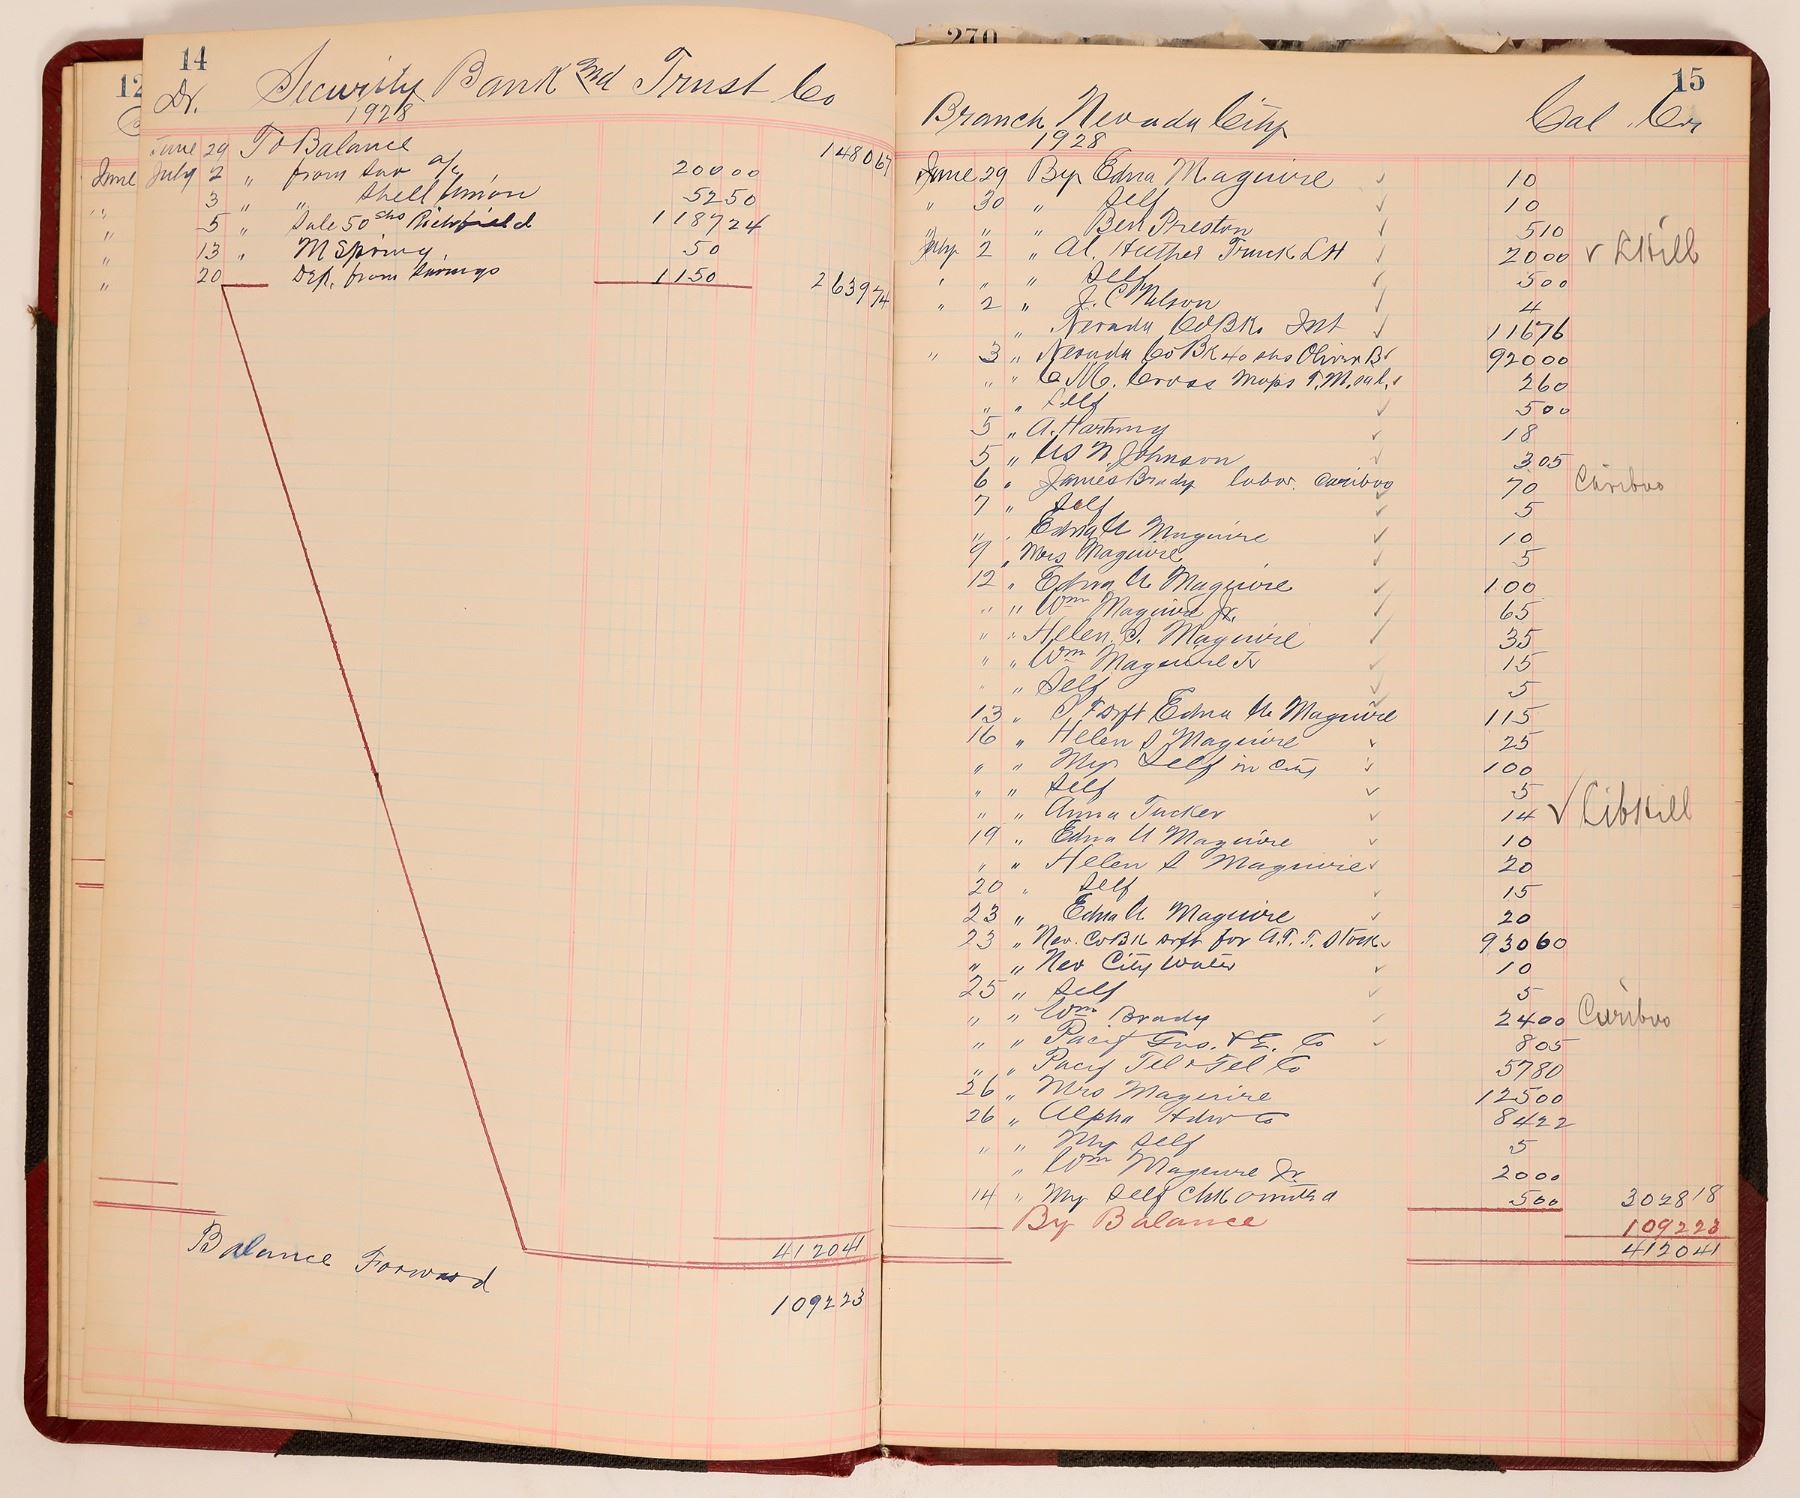 12
14
Dr. Security Bank and Trust Co
1928
June 29 To Balance 148067
June July 2 " from Sav a/c 20000
" 3 " " Shell Union 5250
" 5 " Sale 50 shs Richfield 118724
" 13 " M Spring 50
" 20 Dep. from Savings 1150 263974
412041
Balance Forward 109223
270
15
Branch Nevada City Cal. Cr
1928
June 29 By Edna Maguire ✓ 10
" 30 " Self ✓ 10
" " " Ben Preston ✓ 510
July 2 " Al. Truck LH ✓ 2000 ✓ LHill
" " " Self ✓ 500
" 2 " J. C Nelson ✓ 4
" Nevada Co Bk. Int ✓ 11676
" 3 " Nevada Co Bk 40 shs Oliver B ✓ 92000
" " C M. Cross Maps ✓ 260
" " Self ✓ 500
5 " A. Hartung ✓ 18
5 " N. Johnson ✓ 305
6 " James Brady labor. Caribou 70 Caribou
7 " Self ✓ 5
" " Edna U Maguire ✓ 10
9 " Mrs Maguire ✓ 5
12 " Edna U Maguire ✓ 100
" " Wm Maguire Jr. ✓ 65
" " Helen S. Maguire ✓ 35
" " Wm Maguire Jr ✓ 15
" " Self ✓ 5
13 " Drft Edna U Maguire 115
16 " Helen S Maguire ✓ 25
" " My Self in City ✓ 100
" " Self ✓ 5
" " Anna Tucker ✓ 14 ✓ LibHill
19 " Edna U Maguire ✓ 10
" " Helen S Maguire ✓ 20
20 " Self ✓ 15
23 " Edna U. Maguire ✓ 20
23 " Nev. Co Bk Drft for A. T. T. Stock ✓ 93060
" " Nev City Water ✓ 10
25 " Self ✓ 5
" " Wm Brady ✓ 2400 Caribou
" " Pacif Gas. & E. Co ✓ 805
" " Pacif Tel & Tel Co 5780
26 " Mrs Maguire 12500
26 " Alpha Hdw Co 8422
" " My Self 5
" Wm Maguire Jr. 2000
14 " My Self Chk omitted 500 302818
By Balance 109223
412041